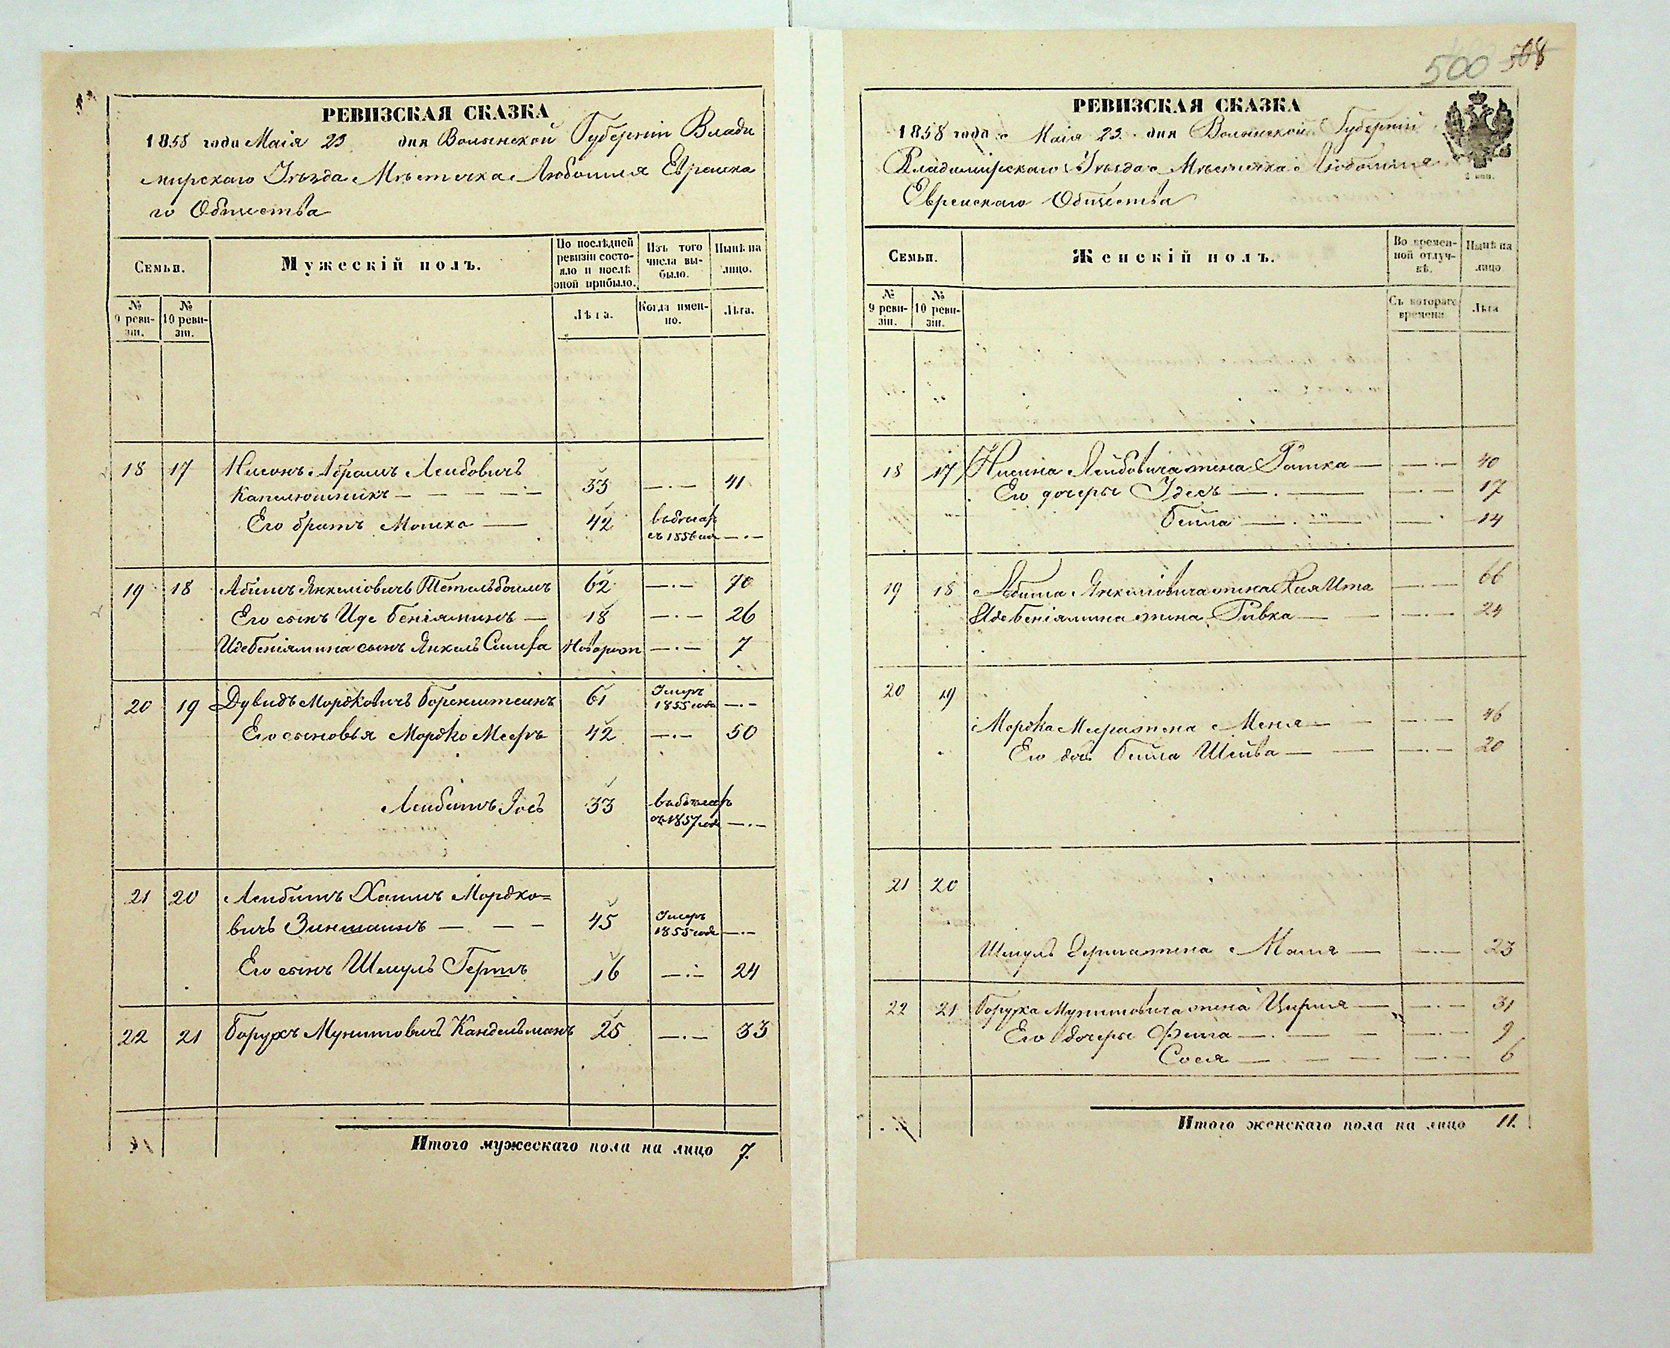 500 508
РЕВИЗСКАЯ СКАЗКА
1858 года Маія 23 дня Волынской Губерніи Влади
мирскаго Уѣзда Мѣстечка Любомля Еврейска
го Общества
Семьи.
Мужескій полъ.
По послѣдней ревизіи состояло и послѣ оной прибыло.
Изъ того числа выбыло.
Нынѣ на лицо.
№ 9 ревизіи.
№ 10 ревизіи.
Лѣта.
Когда именно.
Лѣта.
18 17 Нисонъ Абрамъ Лейбовичъ
Капелюшникъ — — — — 33 —·— 41
Его братъ Мошко — 42 въ бѣгах съ 1856 год —·—
19 18 Абишъ Янкелевичъ Тетельбоимъ 62 —·— 70
Его сынъ Иде Беніяминъ — 18 —·— 26
Иде Беніямина сынъ Янкель Симха Новорож —·— 7
20 19 Дувидъ Мордковичъ Боренштеинъ 61 Умеръ 1855 года —·—
Его сыновья Мордко Мееръ 42 —·— 50
Лейбишъ Іось 33 въ бѣгах съ 1857 года —·—
21 20 Лейбишъ Хаимъ Мордко=
вичъ Зиншаинъ — — — 45 Умеръ 1855 года —·—
Его сынъ Шмуль Гершъ 16 —·— 24
22 21 Борухъ Мунишовичъ Кандельманъ 25 —·— 33
Итого мужескаго пола на лицо 7.
РЕВИЗСКАЯ СКАЗКА
1858 года Маія 23 дня Волынской Губерніи
Владимірскаго Уѣзда Мѣстечка Любомля
Еврейскаго Общества
Семьи.
Женскій полъ.
Во временной отлучкѣ.
Нынѣ на лицо
№ 9 ревизіи.
№ 10 ревизіи.
Съ котораго времени
Лѣта
18 17 Нисина Лейбовича жена Ратка — —·— 40
Его дочеры Идесъ —·— —·— 17
Бейла —·— —· 14
19 18 Абиша Янкеліовича жена Хая Ита —·— 66
Иде Беніямина жена Ривка — —·— 24
20 19
Мордка Меера жена Меня — —·— 46
Его доч. Бейла Шейва — —·— 20
21 20
Шмуля Герша жена Маля — —·— 23
22 21 Боруха Мунишовича жена Цирля — —·— 31
Его дочеры Фейга —·— —·— 9
Сося — — —·— 6
Итого женскаго пола на лицо 11.